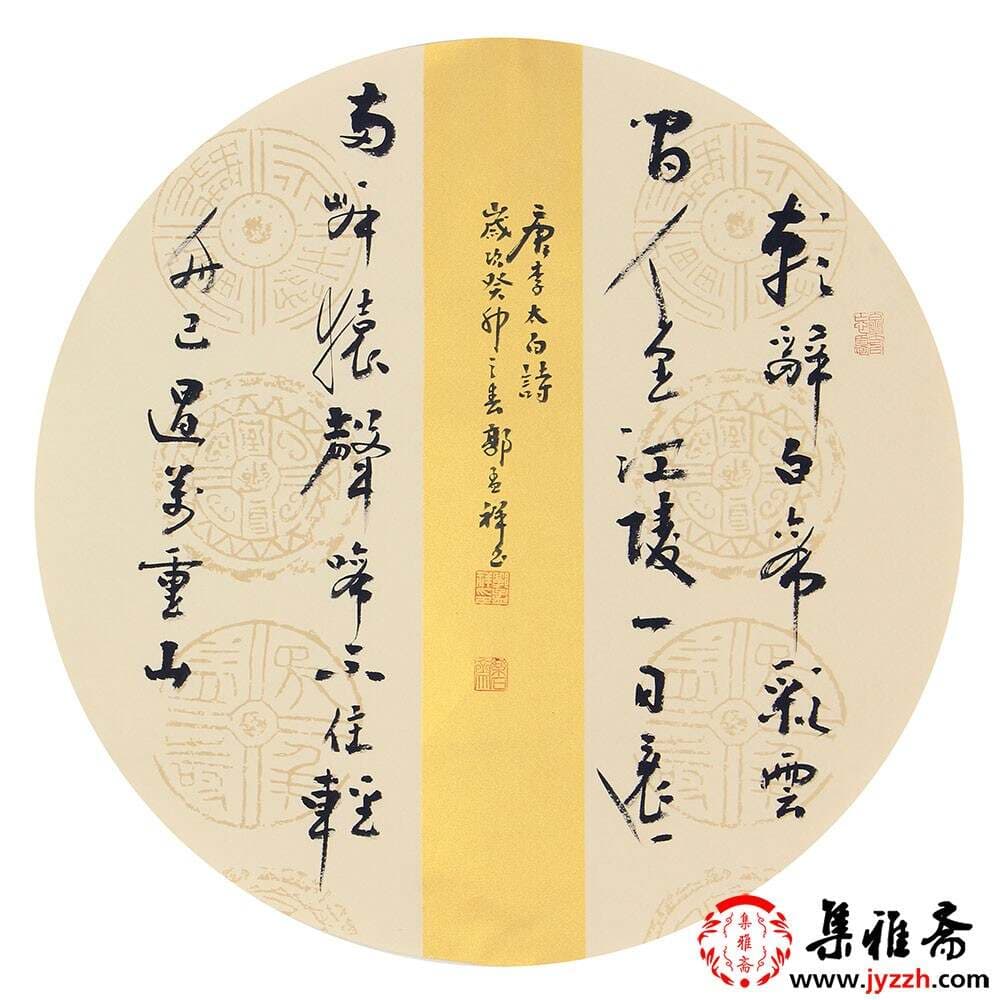 朝辭白帝彩雲
間千里江陵一日還
兩岸猿聲啼不住輕
舟已過萬重山
唐李太白詩
歲次癸卯之春郭孟祥書
集雅斋
集雅斋
www.jyzzh.com